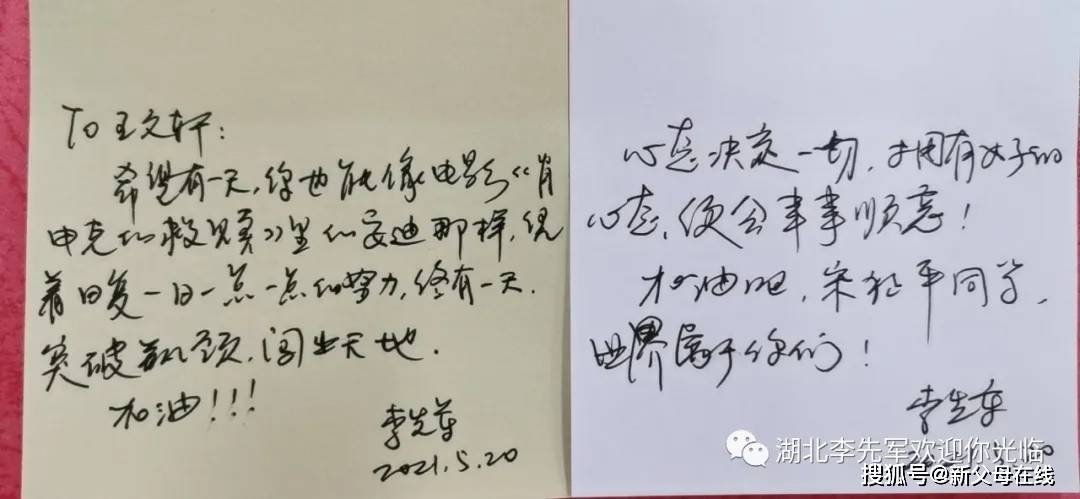 To 王文轩:
希望有一天,你也能像电影《肖
申克的救赎》里的安迪那样,凭
着日复一日一点一点的努力,终有一天,
突破瓶颈,闯出天地.
加油!!!
李先军
2021.5.20
心态决定一切,拥有好的
心态,便会事事顺意!
加油吧,宋和平同学,
世界属于你们!
李先军
湖北李先军欢迎你光临
搜狐号@新父母在线